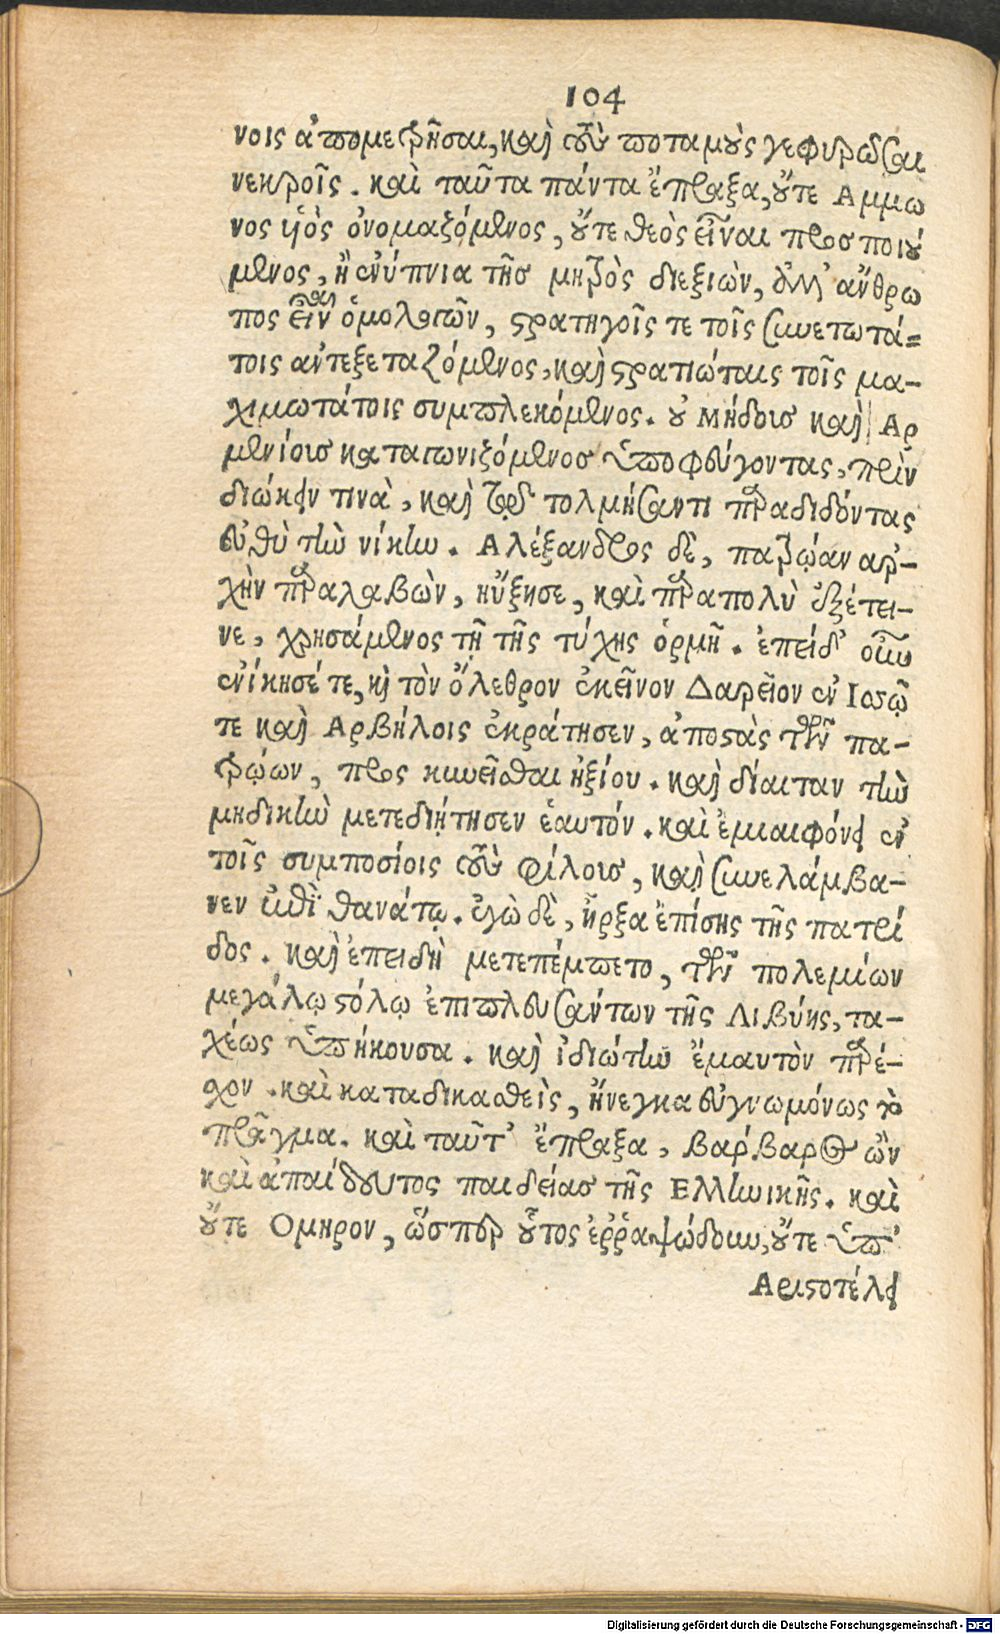 104
νοις ἀπομετρῆσαι, καὶ τοὺς ποταμοὺς γεφυρῶσαι
νεκροῖς. καὶ ταῦτα πάντα ἔπραξα, οὔτε Αμμω
νος υἱὸς ὀνομαζόμενος, οὔτε θεὸς εἶναι προσποιού
μενος, ἢ ἐνύπνια τῆς μητρὸς διεξιὼν, ἀλλ' ἄνθρω
πος εἶναι ὁμολογῶν, στρατηγοῖς τε τοῖς συνετωτά=
τοις ἀντεξεταζόμενος, καὶ στρατιώταις τοῖς μα-
χιμωτάτοις συμπλεκόμενος. οὐ Μήδοις καὶ Αρ
μενίοις καταγωνιζόμενος ὑποφεύγοντας, πρὶν
διώκειν τινὰ, καὶ τῷ τολμήσαντι παραδιδόντας
εὐθὺ τὴν νίκην. Αλέξανδρος δὲ, πατρῴαν ἀρ-
χὴν παραλαβὼν, ηὔξησε, καὶ παραπολὺ ἐξέτει-
νε, χρησάμενος τῇ τῆς τύχης ὁρμῇ. ἐπεὶ δ' οὖν
ἐνίκησέ τε, κὶ τὸν ὄλεθρον ἐκεῖνον Δαρεῖον ἐν Ισσῷ
τε καὶ Αρβήλοις ἐκράτησεν, ἀποστὰς τῶν πα-
τρῴων, προσκυνεῖσθαι ἠξίου. καὶ δίαιταν τὴν
μηδικὴν μετεδιῄτησεν ἑαυτόν. καὶ ἐμιαιφόνει ἐν
τοῖς συμποσίοις τοὺς φίλους, καὶ συνελάμβα-
νεν ἐπὶ θανάτῳ. ἐγὼ δὲ, ἦρξα ἐπίσης τῆς πατρί
δος. καὶ ἐπειδὴ μετεπέμπετο, τῶν πολεμίων
μεγάλῳ στόλῳ ἐπιπλευσάντων τῆς Λιβύης, τα-
χέως ὑπήκουσα. καὶ ἰδιώτην ἔμαυτὸν παρέ-
σχον. καὶ καταδικασθεὶς, ἤνεγκα εὐγνωμόνως τὸ
πρᾶγμα. καὶ ταῦτ' ἔπραξα, βάρβαρος ὢν
καὶ ἀπαίδευτος παιδείας τῆς Ελληνικῆς. καὶ
οὔτε Ομηρον, ὥσπερ οὗτος ἐῤῥαψώδουν, οὔτε ὑπ'
Αριστοτέλει
Digitalisierung gefördert durch die Deutsche Forschungsgemeinschaft - DFG